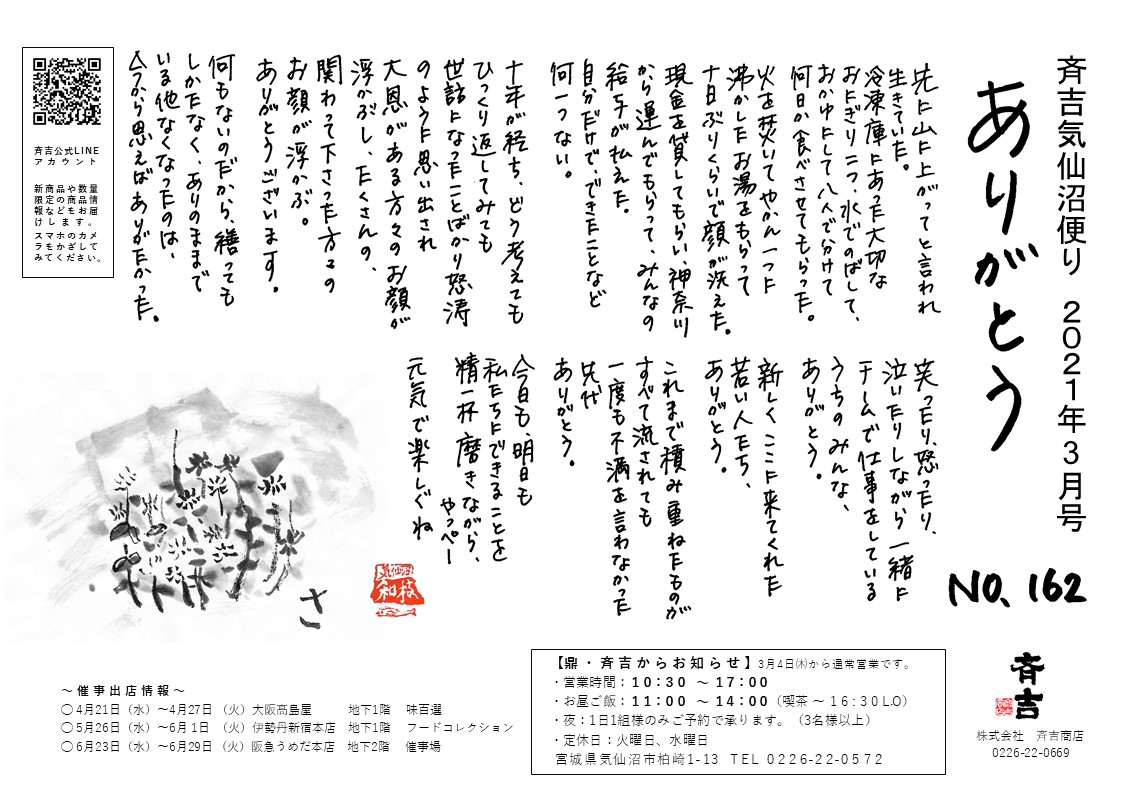 斉吉気仙沼便り 2021年3月号
ありがとう
NO. 162
先に山に上がってと言われ
生きていた。
冷凍庫にあった大切な
おにぎり二つ、水でのばして、
おかゆにして八人で分けて
何日か食べさせてもらった。
火を焚いてやかん一つに
沸かしたお湯をもらって
十日ぶりくらいで顔が洗えた。
現金を貸してもらい、神奈川
から運んでもらって、みんなの
給手が払えた。
自分だけで、できたことなど
何一つない。
十年が経ち、どう考えても
ひっくり返してみても
世話になったことばかり怒涛
のように思い出され
大恩がある方々のお顔が
浮かぶし、たくさんの、
関わって下さった方々の
お顔が浮かぶ。
ありがとうございます。
何もないのだから、繕っても
しかたなく、ありのままで
いる他なくなったのは、
今から思えばありがたかった。
笑ったり、怒ったり、
泣いたりしながら一緒に
チームで仕事をしている
うちのみんな、
ありがとう。
新しくここに来てくれた
若い人たち、
ありがとう。
これまで積み重ねたものが
すべて流されても
一度も不満を言わなかった
先代
ありがとう。
今日も、明日も
私たちにできることを
精一杯磨きながら、
やっぺー
元気で楽しぐね
さ
和枝
斉吉公式LINE
アカウント
新商品や数量
限定の商品情
報などもお届
けします。
スマホのカメ
ラをかざして
みてください。
～催事出店情報～
〇4月21日（水）～4月27日（火）大阪高島屋 地下1階 味百選
〇5月26日（水）～6月1日（火）伊勢丹新宿本店 地下1階 フードコレクション
〇6月23日（水）～6月29日（火）阪急うめだ本店 地下2階 催事場
【鼎・斉吉からお知らせ】3月4日㈭から通常営業です。
・営業時間：10:30 ～ 17:00
・お昼ご飯：11:00 ～ 14:00（喫茶～16:30L.O）
・夜：1日1組様のみご予約で承ります。（3名様以上）
・定休日：火曜日、水曜日
宮城県気仙沼市柏崎1-13 TEL 0226-22-0572
斉吉
株式会社 斉吉商店
0226-22-0669